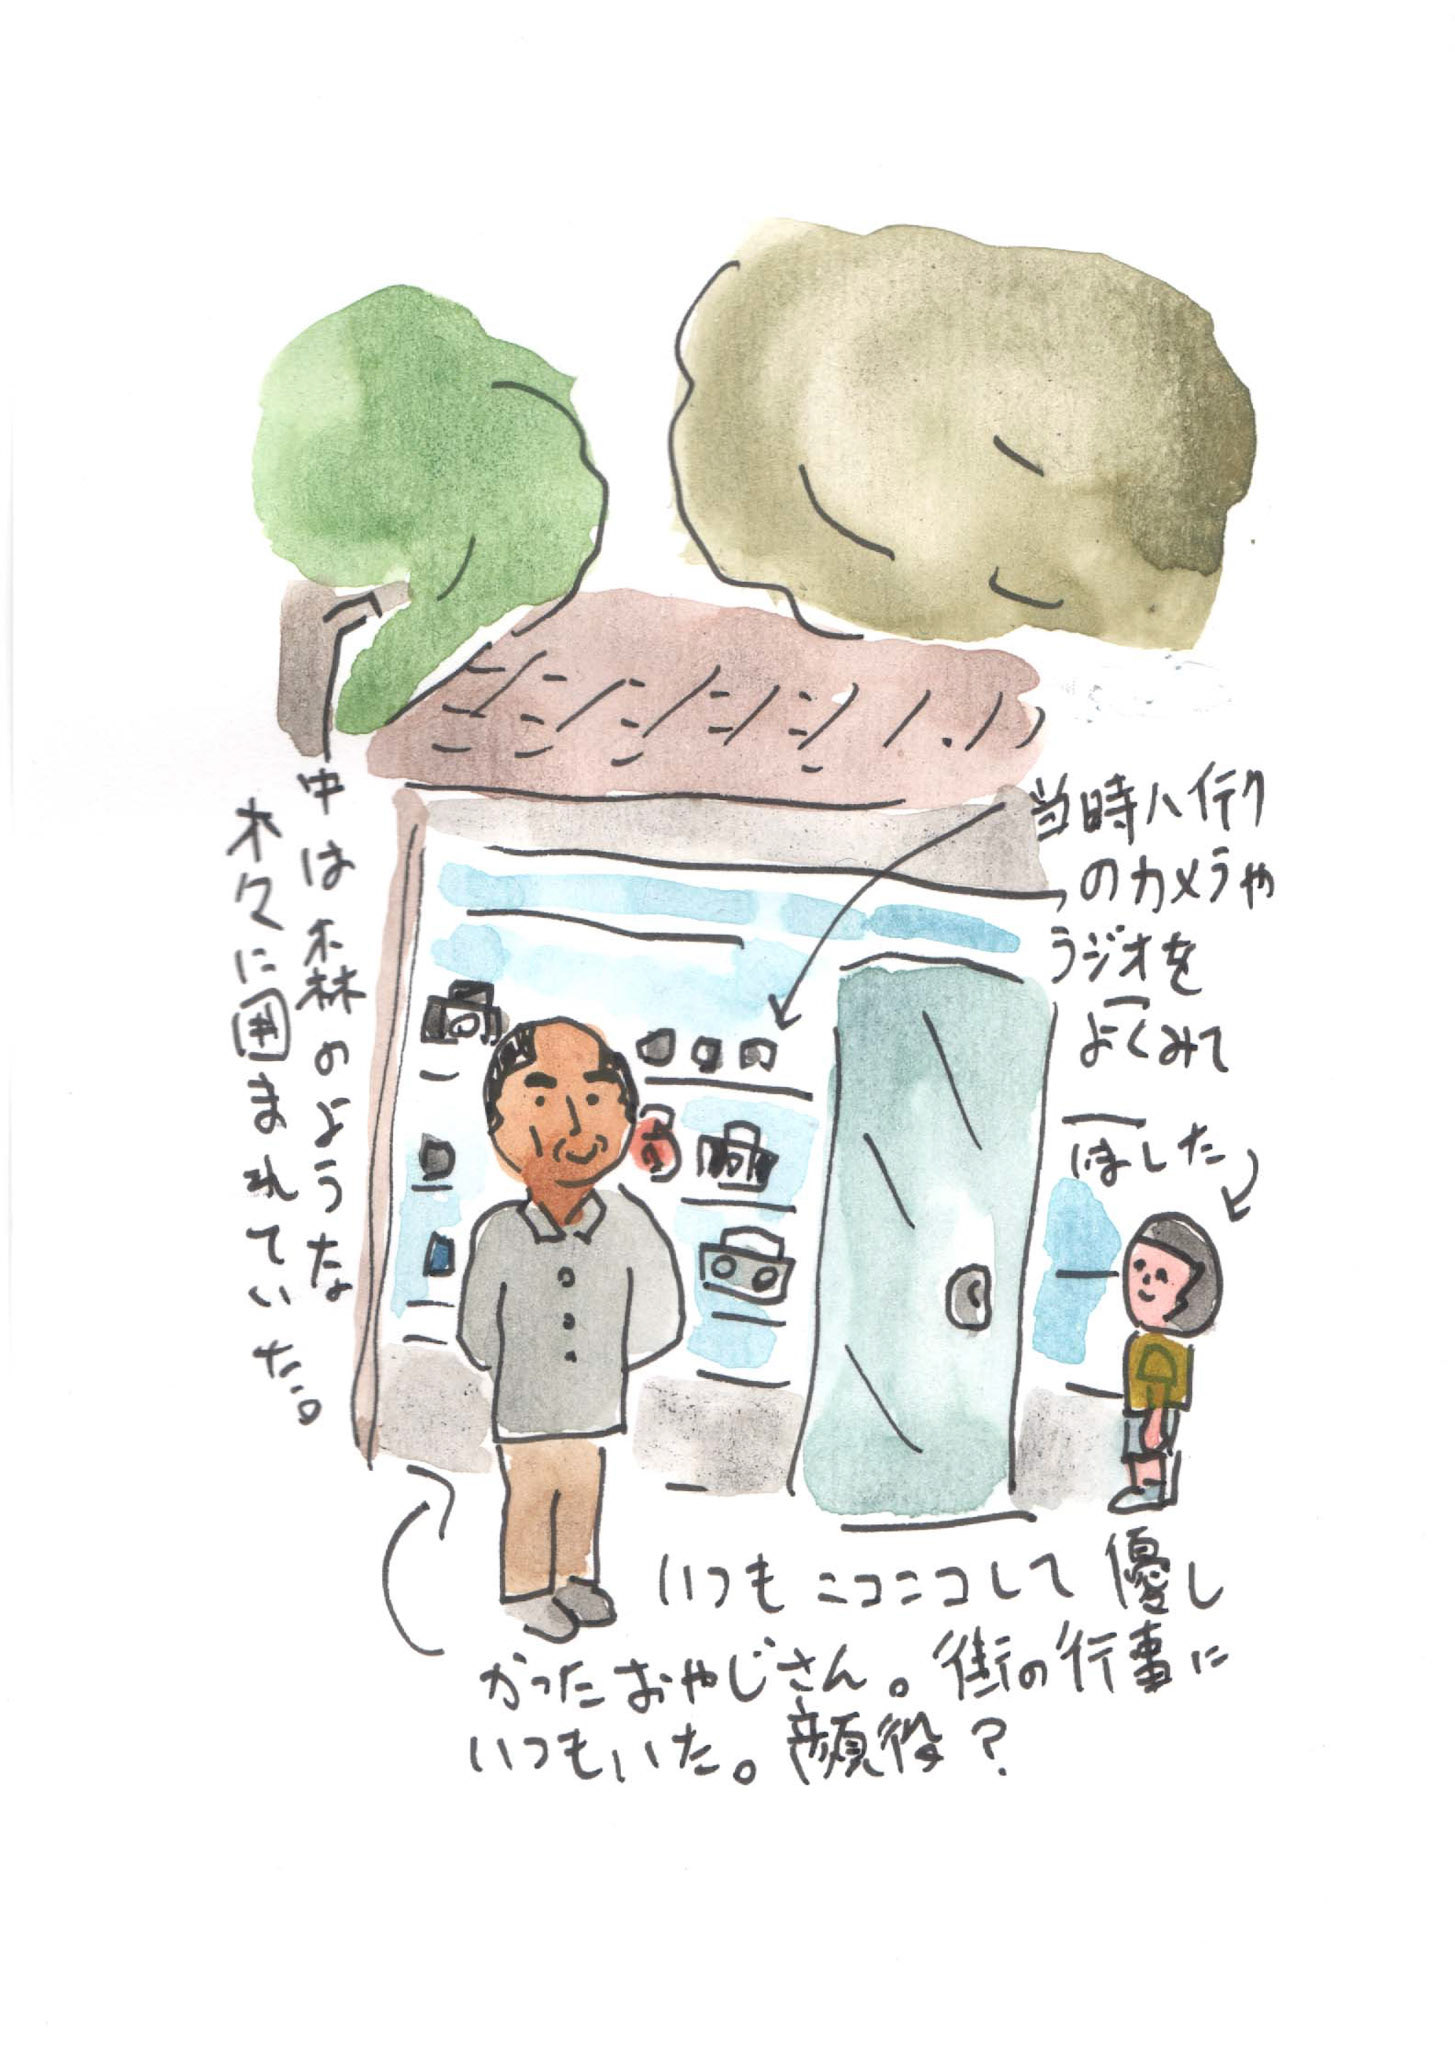 中は森のような
木々に囲まれていた。
当時ハイテク
のカメラや
ラジオを
よくみて
ほした
いつもニコニコして優し
かったおやじさん。街の行事に
いつもいた。顔役？